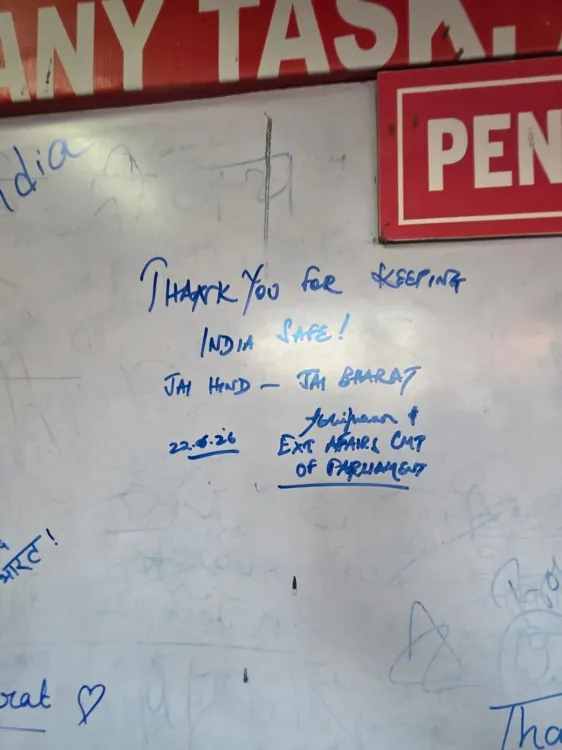 ANY TASK.
PEN
India
THANK YOU FOR KEEPING
INDIA SAFE!
JAI HIND - JAI BHARAT
22.6.26
EXT AFAIRS CMT
OF PARLIAMENT
भारत!
rat ♡
Tha